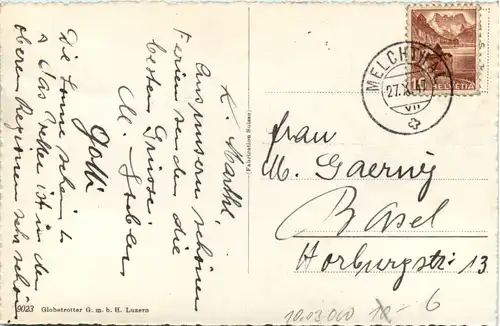 K. Marthi,
Aus unsern schönen
Ferien senden die
besten Grüsse
M. Huber
Gotti
Die Sonne scheint
& das Wetter ist in den
oberen Regionen sehr schön
9023 Globetrotter G. m. b. H. Luzern
(Fabrication Suisse)
MELCHTHAL
27.X.47
VII
HELVETIA
Frau
M. Gaernig
Basel
Horburgstr. 13
10.03.060
6